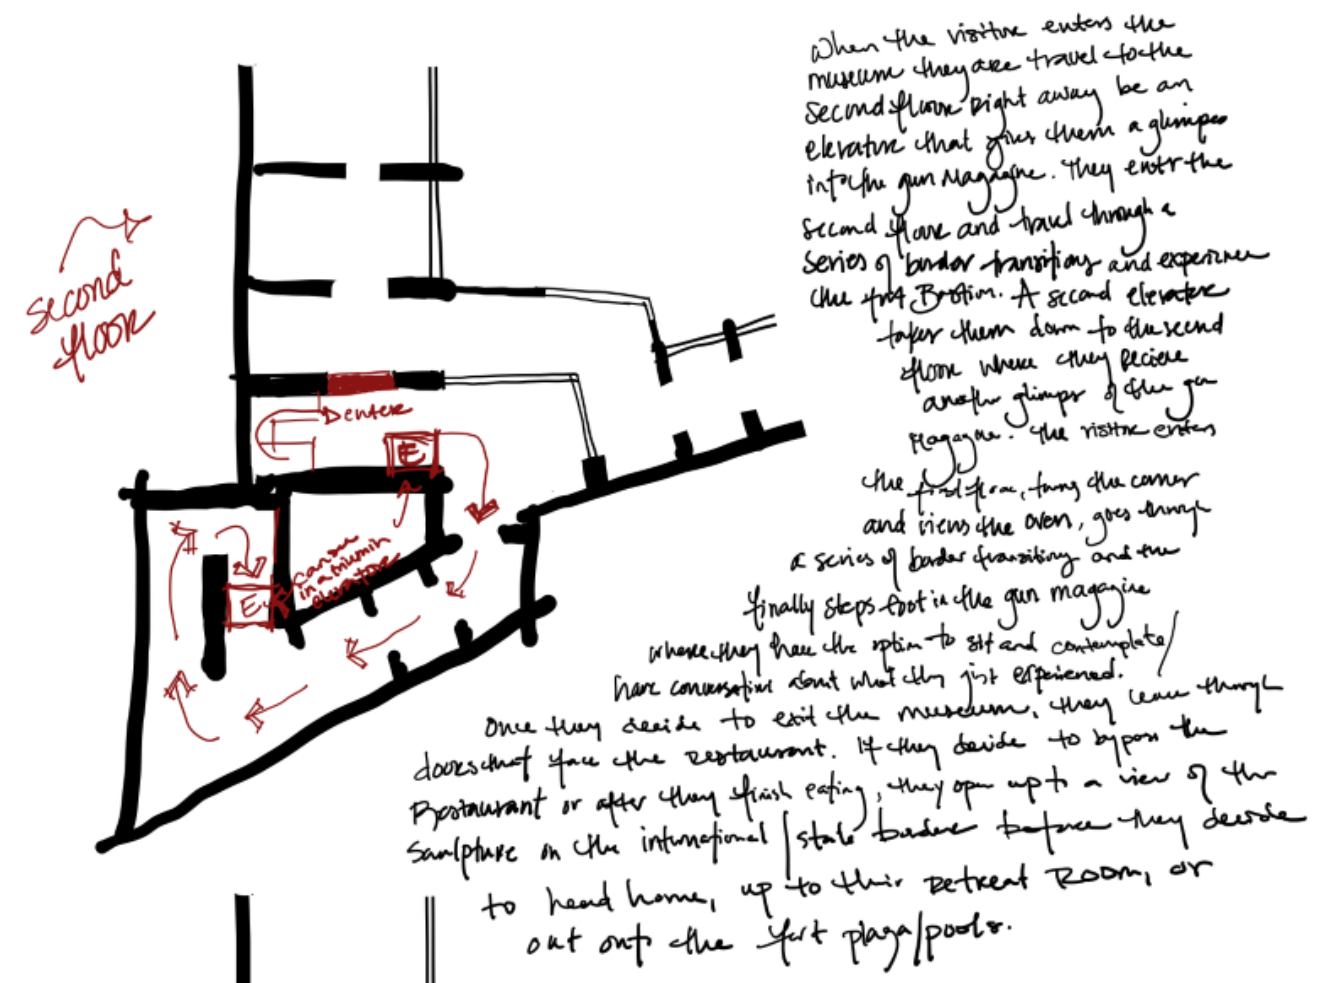 When the visitor enters the
museum they are travel to the
second floor right away be an
elevator that gives them a glimpse
into the gun Magazine. They enter the
second floor and travel through a
series of border transitions and experience
the fort Bastion. A second elevator
takes them down to the second
floor where they recieve
another glimps of the gun
Magazine. The visitor enters
the first floor, turns the corner
and views the oven, goes through
a series of border transitions and the
finally steps foot in the gun magazine
where they have the option to sit and contemplate/
have conversations about what they just experienced.
Once they decide to exit the museum, they leave through
doors that face the restaurant. If they decide to bypass the
Restaurant or after they finish eating, they open up to a view of the
sculpture on the international/state border before they decide
to head home, up to their retreat Room, or
out onto the fort plaza/pools.
second
floor
enter
E
can see
in
elevator
E